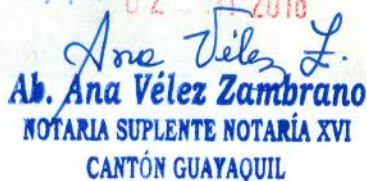 02 2018
Ana Vélez Z.
Ab. Ana Vélez Zambrano
NOTARIA SUPLENTE NOTARÍA XVI
CANTÓN GUAYAQUIL